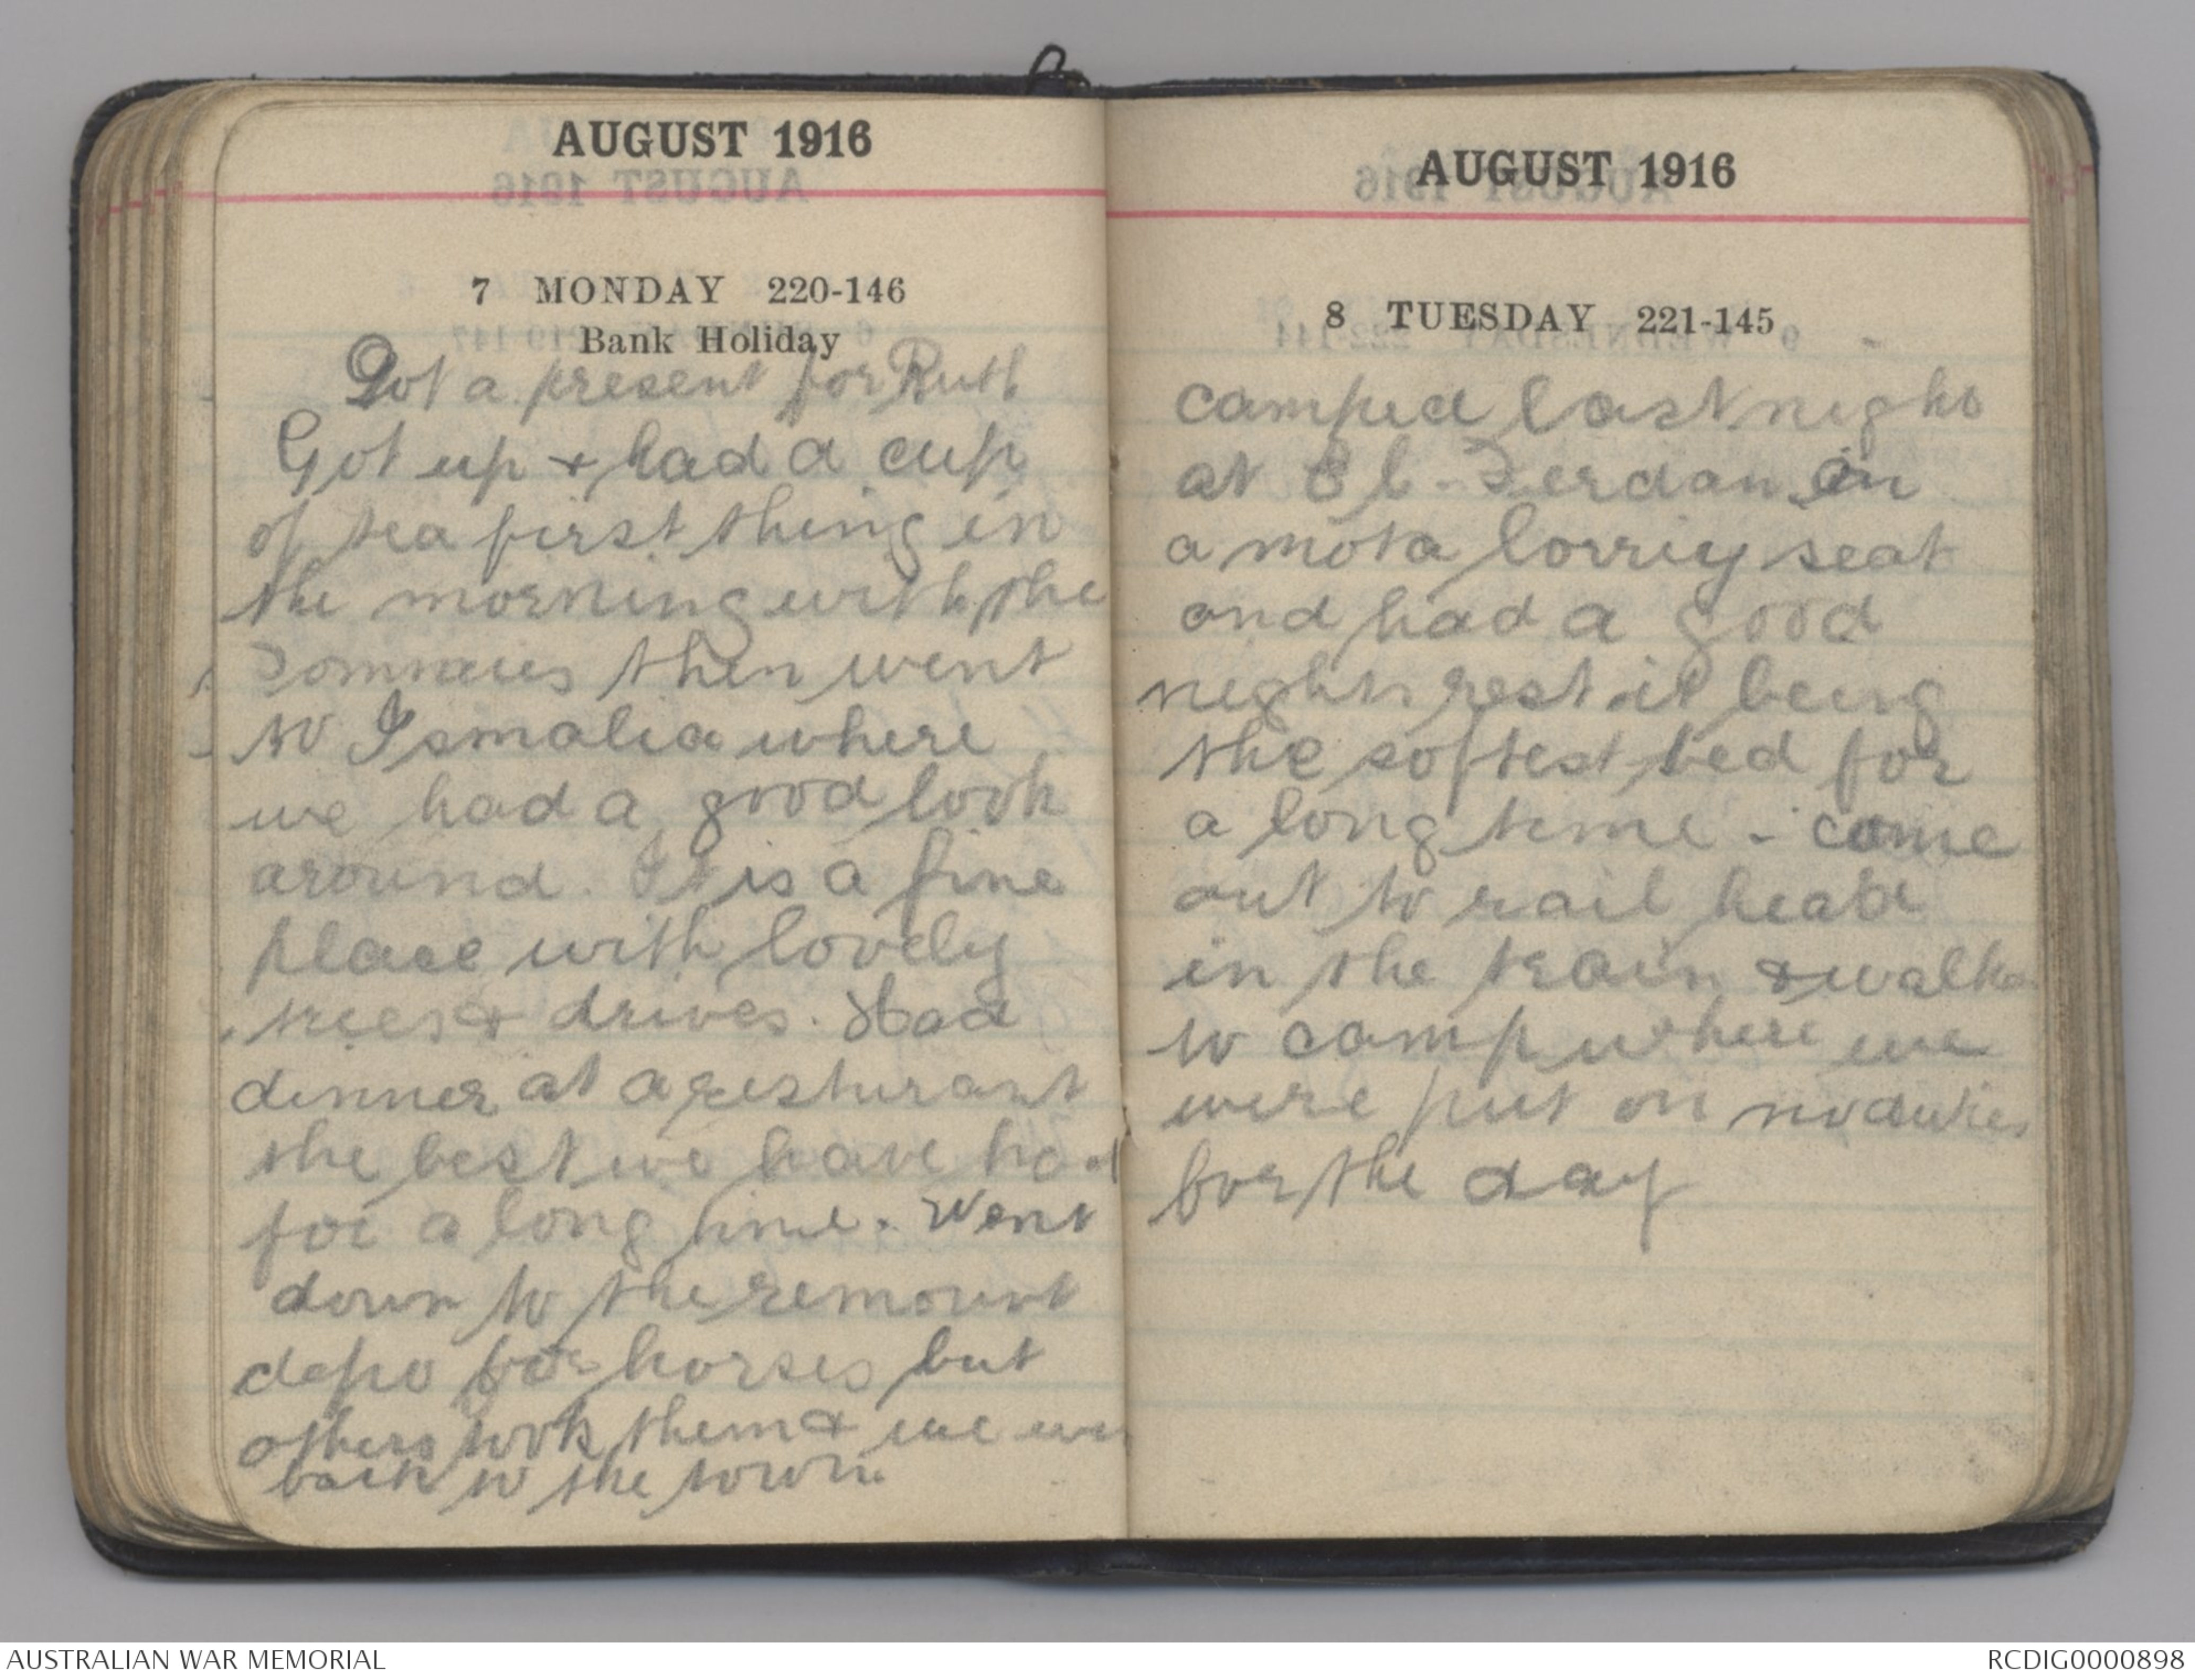 AUGUST 1916
7 MONDAY 220-146
Bank Holiday
Got a present for Ruth
Got up + had a cup
of tea first thing in
the morning with the
Tommies then went
to Ismalia where
we had a good look
around. It is a fine
place with lovely
trees & drives. Had
dinner at a resturant
the best we have had
for a long time. Went
down to the remount
depo for horses but
others took them & we
back to the town.
AUGUST 1916
8 TUESDAY 221-145
camped last night
at El-Ferdan in
a mota lorriy seat
and had a good
nights rest it being
the softest bed for
a long time - come
out to rail head
in the train & walke
to camp where we
were put on no duties
for the day
AUSTRALIAN WAR MEMORIAL
RCDIG0000898